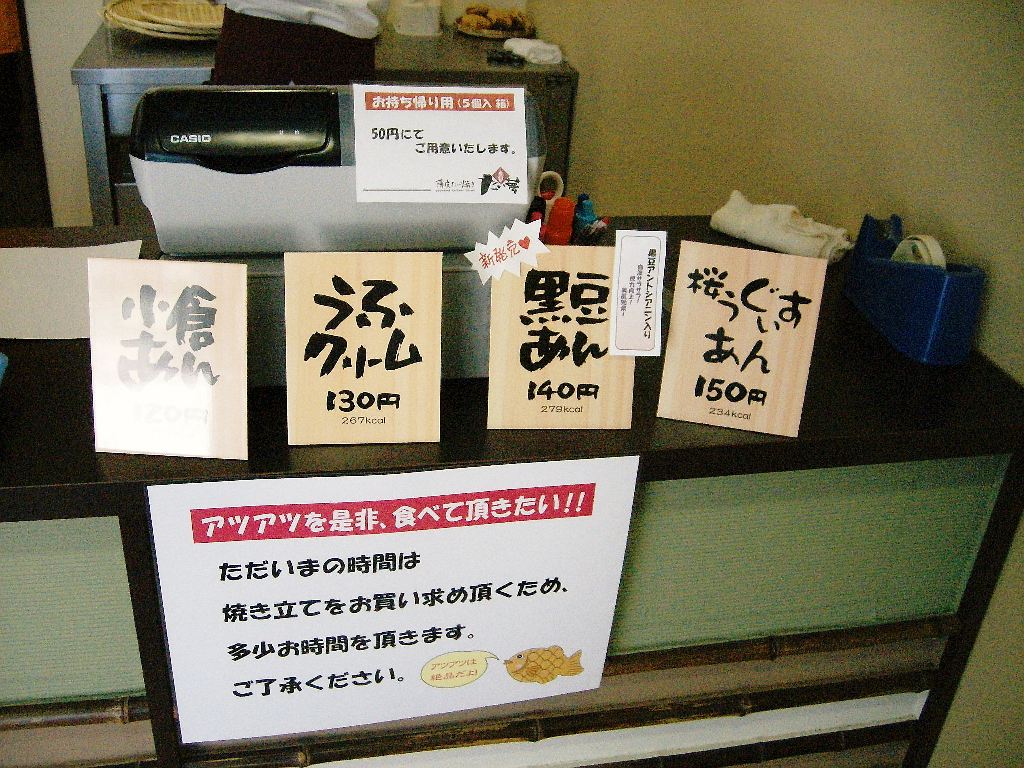 CASIO
お持ち帰り用(5個入 箱)
50円にて
ご用意いたします。
小倉
あん
120円
うふ
クリーム
130円
267kcal
新発売♥
黒豆
あん
140円
279kcal
黒豆アントシアニン入り
桜うぐいす
あん
150円
234kcal
アツアツを是非、食べて頂きたい!!
ただいまの時間は
焼き立てをお買い求め頂くため、
多少お時間を頂きます。
ご了承ください。
アツアツは
絶品だよ!